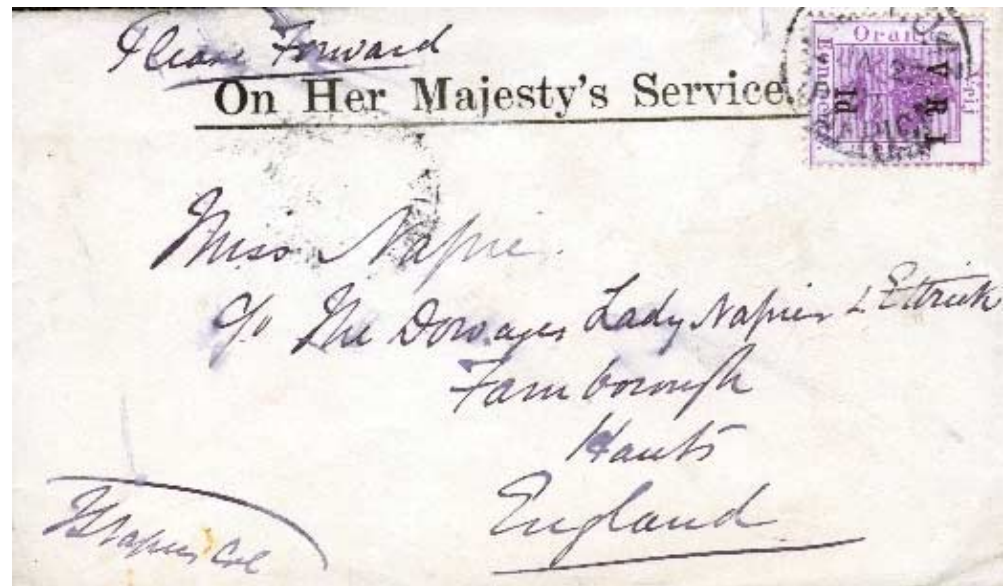 Please Forward
On Her Majesty's Service.
Oranje
Vrij
V R I
1d
Miss Napier
c/o The Dowager Lady Napier & Ettrick
Farnborough
Hants
England
Napier Col